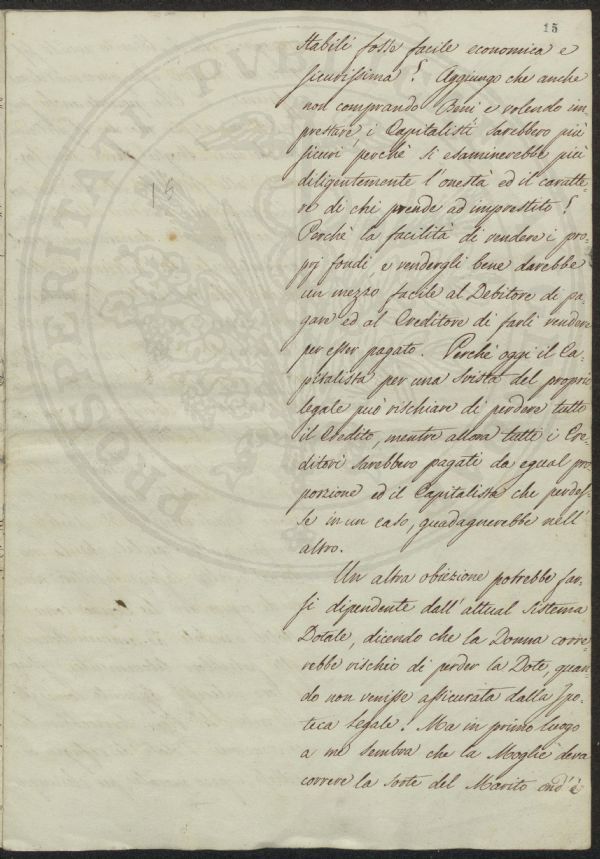 15
stabili fosse facile economica e
sicurissima! Aggiungo che anche
non comprando Beni e volendo im
prestare, i Capitalisti sarebbero più
sicuri, perchè si esaminerebbe più
diligentemente l'onestà ed il caratte-
re di chi prende ad imprestito!
Perchè la facilità di vendere i pro-
prj fondi, e vendergli bene darebbe
un mezzo facile al Debitore di pa-
gare ed al Creditore di farli vendere
per esser pagato. Perchè oggi il Ca-
pitalista per una svista del proprio
legale può rischiare di perdere tutto
il Credito, mentre allora tutti i Cre-
ditori sarebbero pagati da egual pro
porzione ed il Capitalista che perdes-
se in un caso, guadagnerebbe nell'
altro.
Un altra obiezione potrebbe far-
si dipendente dall'attual sistema
Dotale, dicendo che la Donna corre-
rebbe rischio di perder la Dote, quan-
do non venisse assicurata dalla Ipo-
teca legale! Ma in primo luogo
a me sembra che la Moglie deva
correre la sorte del Marito ond'è
15
PROSPERITATI PUBLICAE